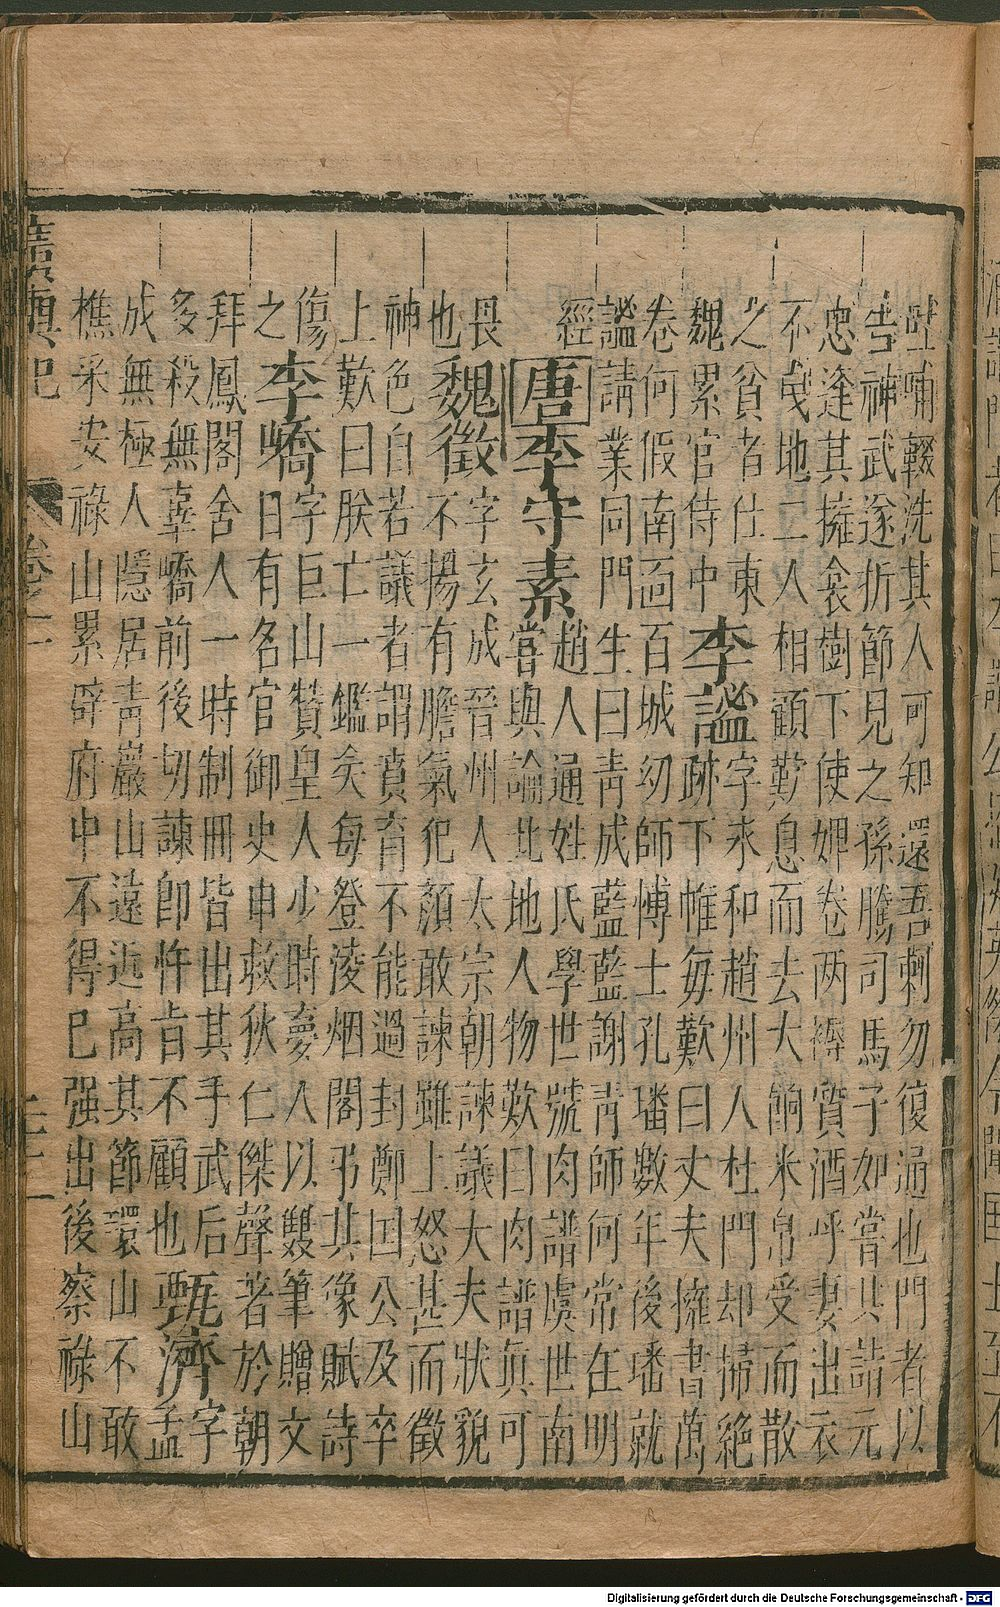 吐哺輟洗其人可知還吾刺勿復通也門者以
告神武遂折節見之孫騰司馬子如嘗共詣元
忠逢其擁衾樹下使婢卷两褥質酒呼妻出衣
不曳地二人相顧歎息而去大餉米帛受而散
之貧者仕東
魏累官侍中
李謐
字永和趙州人杜門却掃絕
跡下帷每歎曰丈夫擁書萬
卷何假南面百城幼師博士孔璠數年後璠就
謐請業同門生曰青成藍藍謝青師何常在明
經
唐
李守素
趙人通姓氏學世號肉譜虞世南
嘗與論此地人物歎曰肉譜眞可
畏
也
魏徵
字玄成晉州人太宗朝諫議大夫狀貌
不揚有膽氣犯顏敢諫雖上怒甚而徵
神色自若議者謂賁育不能過封鄭国公及卒
上歎曰朕亡一鑑矣每登淩烟閣弔其像賦詩
傷
之
李嶠
字巨山贊皇人少時夢人以雙筆贈文
日有名官御史申救狄仁傑聲著於朝
拜鳳閣舍人一時制冊皆出其手武后
多殺無辜嶠前後切諫卽忤旨不顧也
甄濟
字
孟
成無極人隱居靑巖山遠近高其節環山不敢
樵采安祿山累辟府中不得已强出後察祿山
廣輿記
卷之二
Digitalisierung gefördert durch die Deutsche Forschungsgemeinschaft - DFG